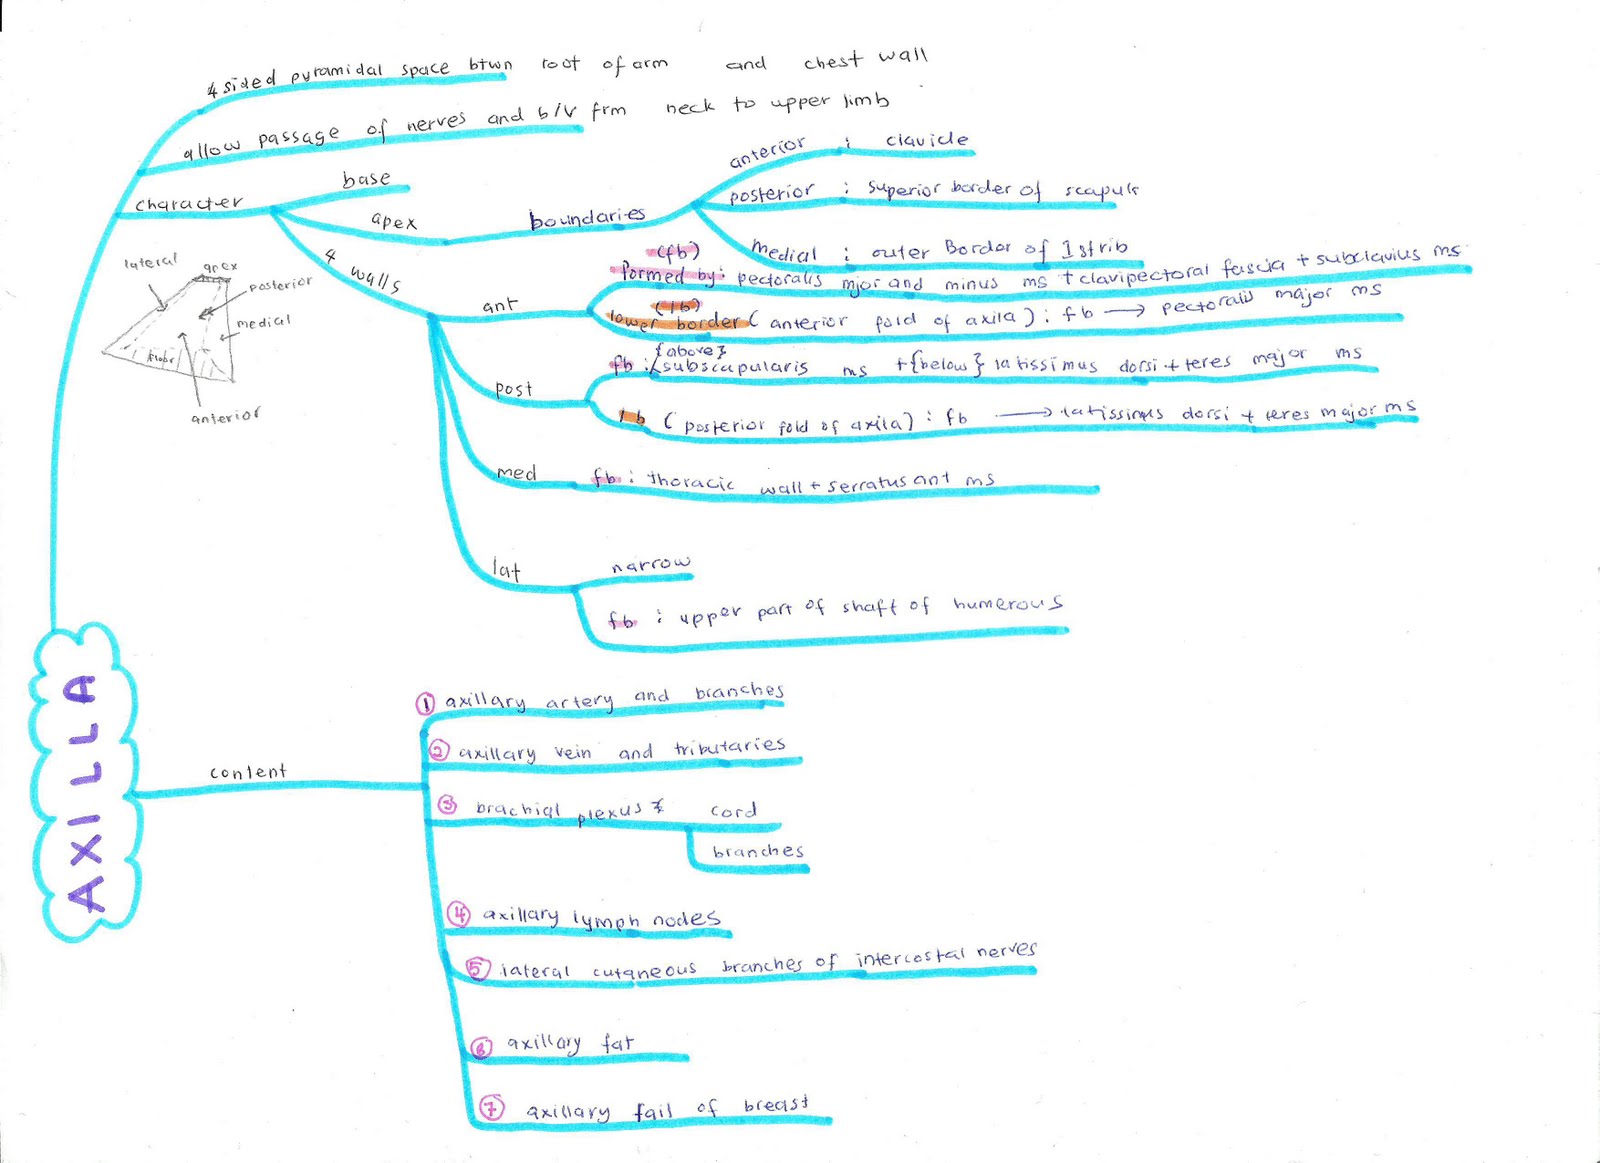 4 sided pyramidal space btwn root of arm and chest wall
allow passage of nerves and b/v frm neck to upper limb
character
base
apex
boundaries
anterior : clavicle
posterior : superior border of scapula
medial : outer Border of 1st rib
4 walls
ant
(fb)
formed by: pectoralis mjor and minus ms + clavipectoral fascia + subclavius ms
(lb)
lower border (anterior fold of axila) : fb → pectoralis major ms
post
{above}
fb : subscapularis ms +{below} latissimus dorsi + teres major ms
lb (posterior fold of axila) : fb → latissimus dorsi + teres major ms
med
fb : thoracic wall + serratus ant ms
lat
narrow
fb : upper part of shaft of humerous
lateral
apex
posterior
medial
floor
anterior
AXILLA
content
① axillary artery and branches
② axillary vein and tributaries
③ brachial plexus : cord
branches
④ axillary lymph nodes
⑤ lateral cutaneous branches of intercostal nerves
⑥ axillary fat
⑦ axillary fail of breast